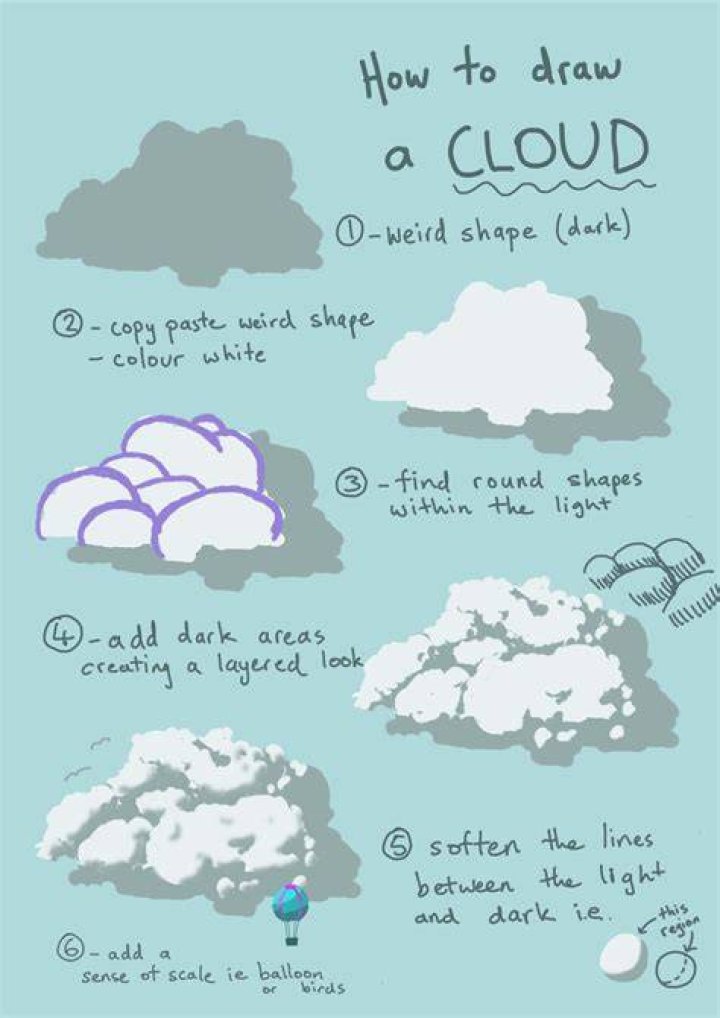 How to draw
a CLOUD
① - weird shape (dark)
② - copy paste weird shape
- colour white
③ - find round shapes
within the light
④ - add dark areas
creating a layered look
⑤ soften the lines
between the light
and dark i.e.
this
region
⑥ - add a
sense of scale ie balloon
or birds